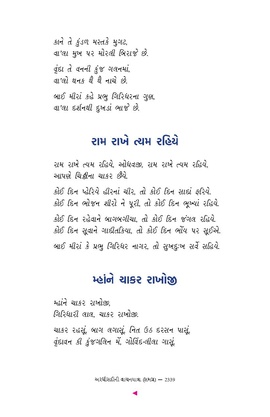 કાને તે કુંડળ મસ્તકે મુગટ,
વા'લા મુખ પર મોરલી બિરાજે છે.
વૃંદા તે વનની કુંજ ગલનમાં,
વા'લો થનક થૈ થૈ નાચે છે.
બાઈ મીરાં કહે પ્રભુ ગિરિધરના ગુણ,
વા'લા દર્શનથી દુખડાં ભાજે છે.
રામ રાખે ત્યમ રહિયે
રામ રાખે ત્યમ રહિયે, ઓધવજી, રામ રાખે ત્યમ રહિયે,
આપણે ચિઠ્ઠીના ચાકર છૈયે.
કોઈ દિન પ્હેરિયે હીરનાં ચીર, તો કોઈ દિન સાદાં ફરિયે.
કોઈ દિન ભોજન શીરો ને પૂરી, તો કોઈ દિન ભૂખ્યાં રહિયે.
કોઈ દિન રહેવાને બાગબગીચા, તો કોઈ દિન જંગલ રહિયે.
કોઈ દિન સૂવાને ગાદીતકિયા, તો કોઈ દિન ભોંય પર સૂઈએ.
બાઈ મીરાં કે પ્રભુ ગિરિધર નાગર, તો સુખદુઃખ સર્વે સહિયે.
મ્હાંને ચાકર રાખોજી
મ્હાંને ચાકર રાખોજી,
ગિરિધારી લાલ, ચાકર રાખોજી.
ચાકર રહસૂં, બાગ લગાસૂં, નિત ઉઠ દરસન પાસૂં,
વૃંદાવન કી કુંજગલિન મેં, ગોવિંદ-લીલા ગાસૂં.